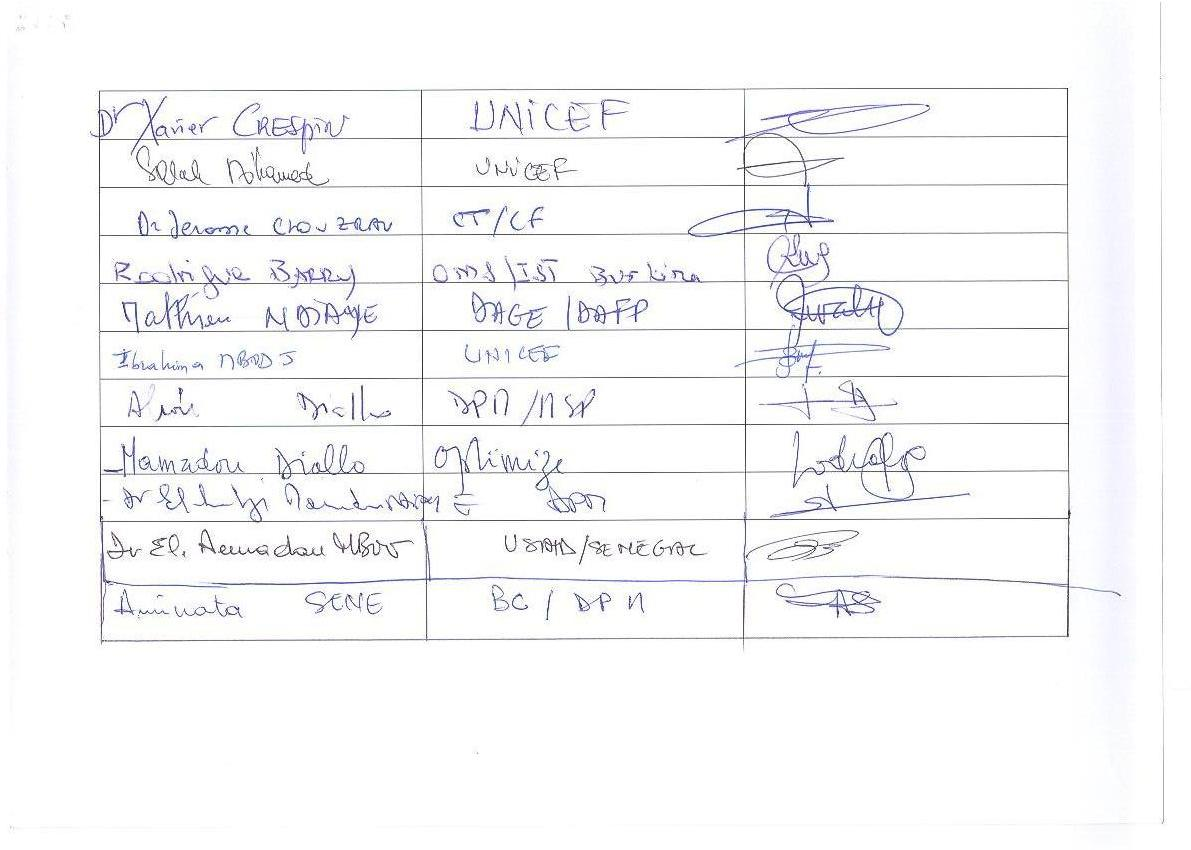 Dr Xavier CRESPIN UNICEF
Salah Mohamed UNICEF
Dr Jerome CLOUZEAU CT/CF
Rodrigue BARRY OMS/IST Burkina
Mathieu NDIAYE DAGE/DAFP
Ibrahima MBODJ UNICEF
Diallo DPM/MSP
-Mamadou Diallo Optimize
-Dr El hadji Mamadou NDIAYE DPM
Dr El. Amadou MBOW USAID/SENEGAL
Aminata SENE BC/DPM